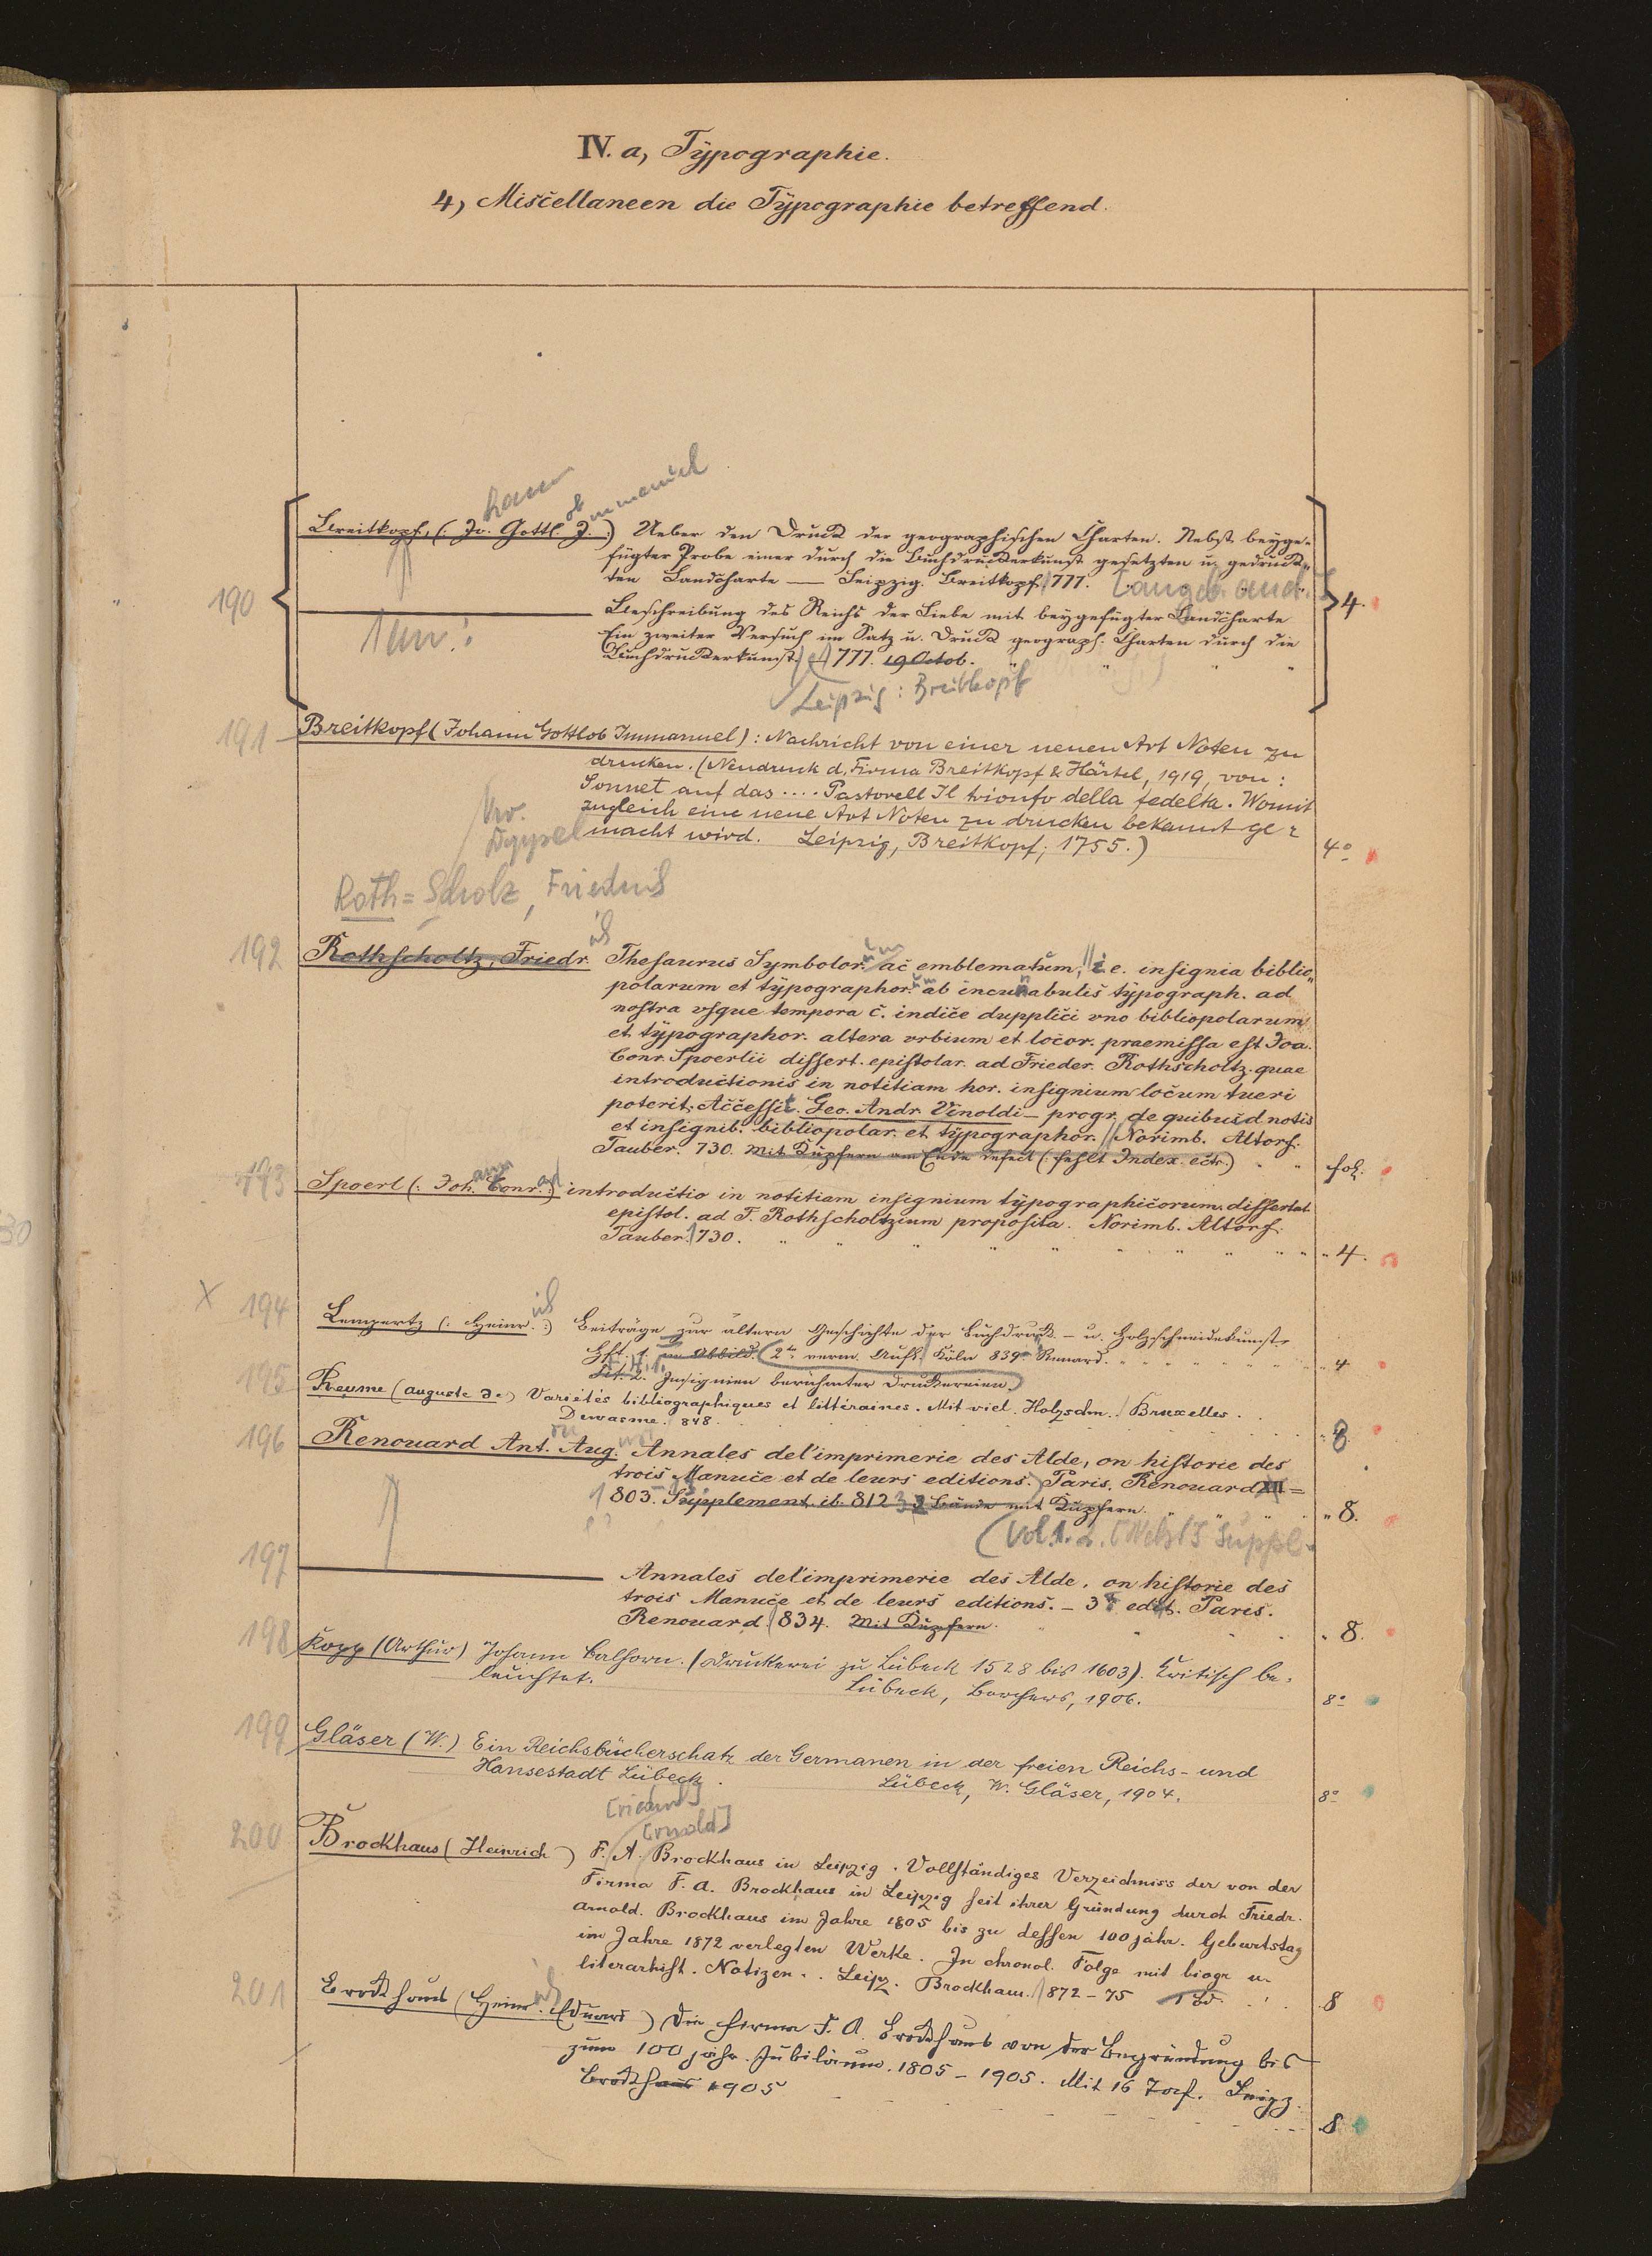 IV. a, Typographie.
4, Miscellaneen die Typographie betreffend.
hann ob mmanuel
Breitkopf, (: Jo. Gottl. I. :) Ueber den Druck der geographischen Charten. Nebst beyge-
fügter Probe einer durch die Buchdruckerkunst gesetzten u. gedruck-
ten Landcharte — Leipzig. Breitkopf 1777. [angeb. and.]
190
4.
Beschreibung des Reichs der Liebe mit beygefügter Landcharte
1 an:
Ein zweiter Versuch im Satz u. Druck geograph. Charten durch die
Buchdruckerkunst. 1777. 19 Octob. " " " "
Leipzig: Breitkopf
191 Breitkopf (Johann Gottlob Immanuel) : Nachricht von einer neuen Art Noten zu
drucken. (Neudruck d. Firma Breitkopf & Härtel, 1919, von:
Sonnet auf das .... Pastorell Il trionfo della fedelta. Womit
zugleich eine neue Art Noten zu drucken bekannt ge-
macht wird. Leipzig, Breitkopf, 1755.) 4º
Roth=Scholz, Friedrich
192 Rothscholtz, Friedr. Thesaurus Symbolor. ac emblematum, i. e. insignia biblio-
polarum et typographor. ab incunabulis typograph. ad
nostra vsque tempora c. indice dupplici vno bibliopolarum
et typographor. altera vrbium et locor. praemissa est Joa.
Conr. Spoerlii dissert. epistolar. ad Frieder. Rothscholtz. quae
introductionis in notitiam hor. insignium locum tueri
poterit. Accessit. Geo. Andr. Vinoldi — progr. de quibusd. notis
et insignib. bibliopolar. et typographor. Norimb. Altorf.
Tauber. 730. Mit Kupfern am Ende defect (: fehlt Index. ectr.) " " fol.
193 Spoerl (: Joh. Conr. :) introductio in notitiam insignium typographicorum dissertat.
ann ad
epistol. ad F. Rothscholtzium proposita. Norimb. Altorf.
Tauber. 1730. " " " " " " " " " 4.
X 194 Lempertz (: Heinr. :) Beiträge zur ältern Geschichte der Buchdruck- u. Holzschneidekunst.
ich
Hft. 1. m Abbild. 2te verm. Aufl. Köln 839. Heinard. " " " " " " 4
Hft. 2. Insignien berühmter Druckereien.
195 Reume (auguste de) Variétés bibliographiques et littéraires. Mit viel. Holzschn. Bruxelles.
Dewasme. 848. 8
196 Renouard Ant. Aug. Annales de l'imprimerie des Alde, on historie des
trois Manuce et de leurs editions. Paris. Renouard XII =
1803. Supplement. ib. 812 3 Bände mit Kupfern. " " " 8.
(Vol 1. 2. [Nebst] Suppl.
197 Annales de l'imprimerie des Alde, on historie des
trois Manuce et de leurs editions. — 3e edit. Paris.
Renouard. 834. Mit Kupfern. " 8.
198 Kopp (Arthur) Johann Balhorn. (Druckerei zu Lübeck 1528 bis 1603). Kritisch be-
leuchtet. Lübeck, Borchers, 1906. 8º
199 Gläser (W.) Ein Reichsbücherschatz der Germanen in der freien Reichs- und
Hansestadt Lübeck. Lübeck, W. Gläser, 1904. 8º
[rnold]
200 Brockhaus (Heinrich) F. A. Brockhaus in Leipzig. Vollständiges Verzeichniss der von der
Firma F. A. Brockhaus in Leipzig seit ihrer Gründung durch Friedr.
Arnold. Brockhaus im Jahre 1805 bis zu dessen 100 jähr. Geburtstag
im Jahre 1872 verlegten Werke. In chronol. Folge mit biogr. u.
literarhist. Notizen.. Leipz. Brockhaus. 1872 – 75 1 Bd. . . 8
201 Brockhaus (Heinr. Eduard) Die Firma F. A. Brockhaus von der Begründung bis
zum 100 jähr. Jubiläum. 1805 – 1905. Mit 16 Taf. Leipz.
Brockhaus 1905 8